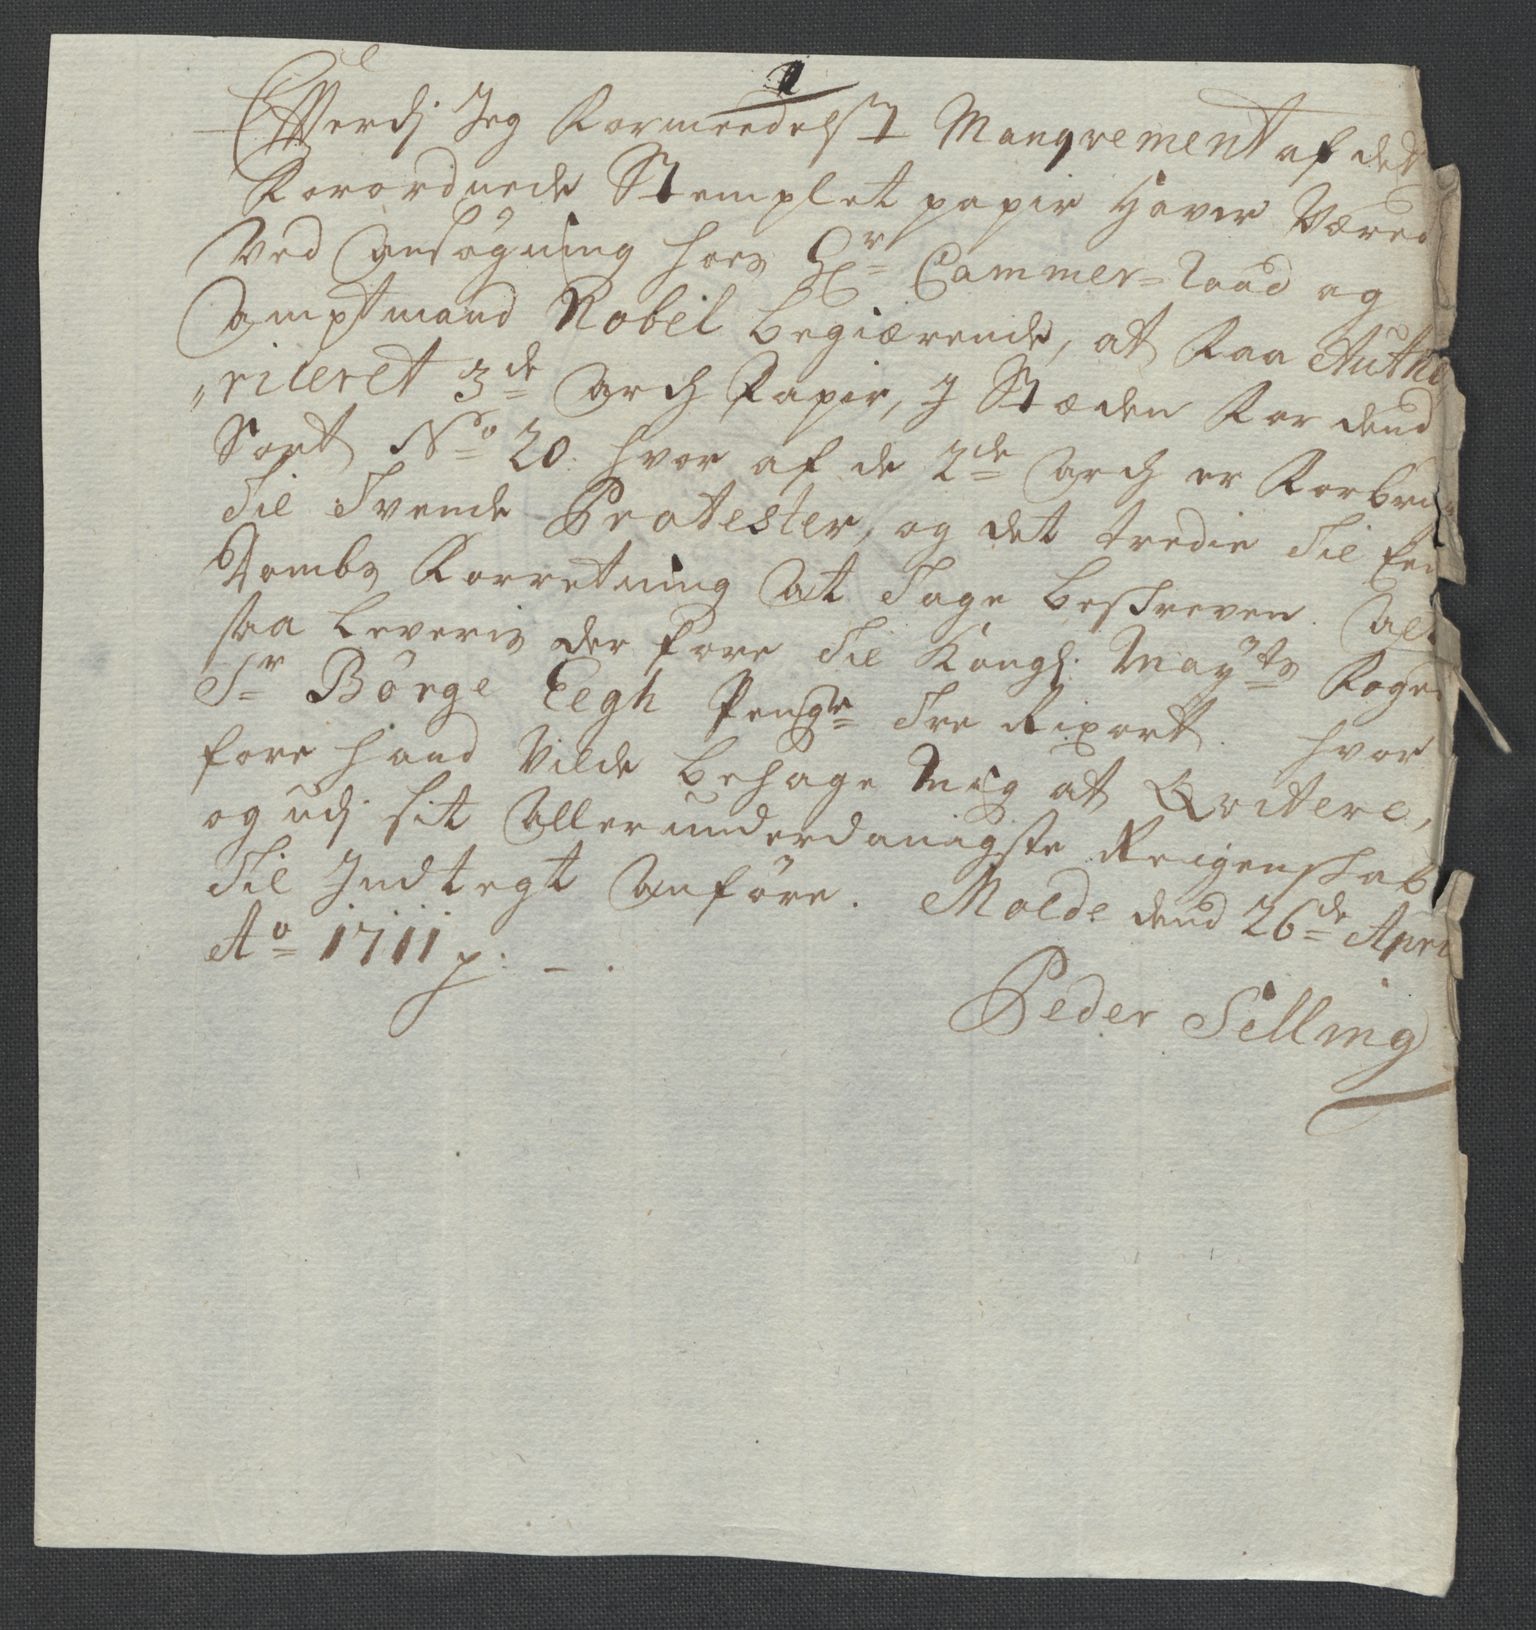 1
Efterdj Jeg Formeedelst Manqvement af det
Forordnede Stemplet papir Haver Været
Ved Ansøgning hoes Hr Cammer=Raad og
Amptmand Nobel begiærende, at Faa Autho
„riceret 3de Arch Papir, J Stæden For dend
Sort No 20. hvor af de 2de Arch er Forbrug
Til Tvende Protester, og det tredie Til En
Dombs Forretning At Tage beskreven. Alt
saa Leveris der fore Til Kongl. Mayts Foge
Sr Børge Eegh Penge Tre Rixort. hvor
fore hand Vilde behage Mig at Qvitere,
og udj sit Allerunderdanigste Reigenskab
Til Indtegt Anføre. Molde dend 26de Apri
Ao 1711 p: – .
Peder Selling